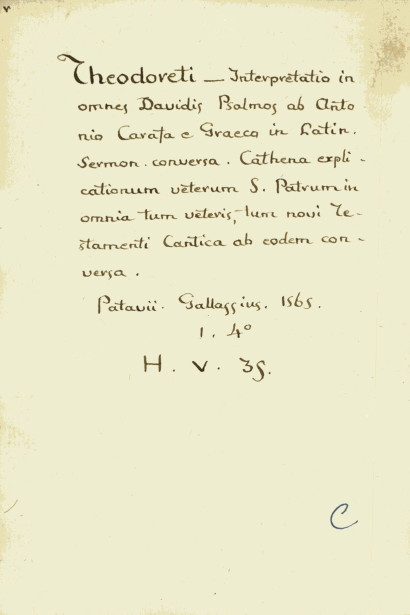 Theodoreti — Interpretatio in
omnes Davidis Psalmos ab Anto
nio Carafa e Graeco in Latin.
Sermon. conversa. Cathena expli-
cationum veterum S. Patrum in
omnia tum veteris, tum novi Te-
stamenti Cantica ab eodem con-
versa.
Patavii. Gallassius. 1565.
1. 4º
H. V. 35.
C